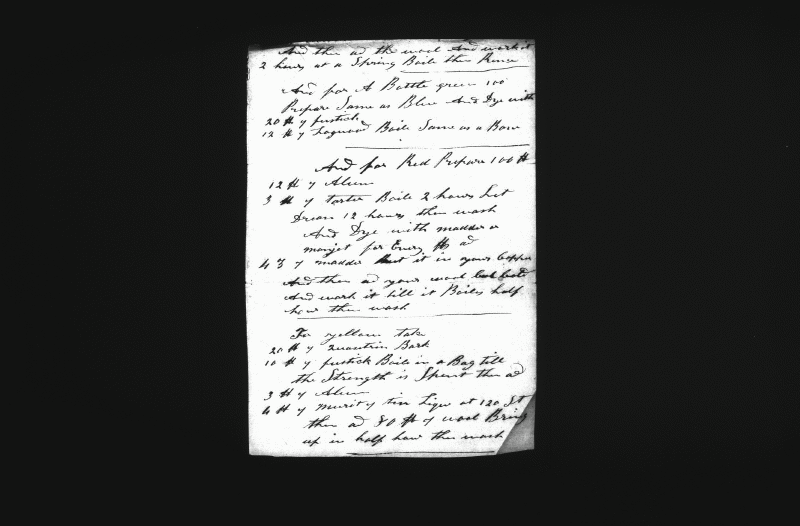 And then ad the wool And work it
2 hours at a Spring Boile then Rince
And for A Bottle green 100
Prepare Same as Blue And Dye with
20 ℔ of fustick
12 ℔ of Logwood Boile Same as a Bove
And for Red Prepare 100 ℔
12 ℔ of Alum
3 ℔ of tarter Boile 2 hours Let
Drean 12 hours then wash
And Dye with madder or
monjet for Every ℔ ad
4 ℥ of madder Put it in your Copper
And then ad your wool
And work it till it Boiles half
hour then wash
For yellow take
20 ℔ of Bark
10 ℔ of fustick Boile in a Bag till
the Strength is Spent then ad
3 ℔ of Alum
4 ℔ of tin Liqur at 120
then ad 80 ℔ of wool Bring
up in half hour then wash